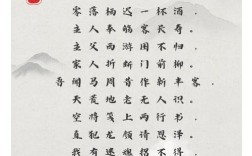 零落栖迟一杯酒，
主人奉觞客长寿。
主父西游困不归，
家人折断门前柳。
吾闻马周昔作新丰客，
天荒地老无人识。
空将笺上两行书，
直犯龙颜请恩泽。
我有迷魂招不得，